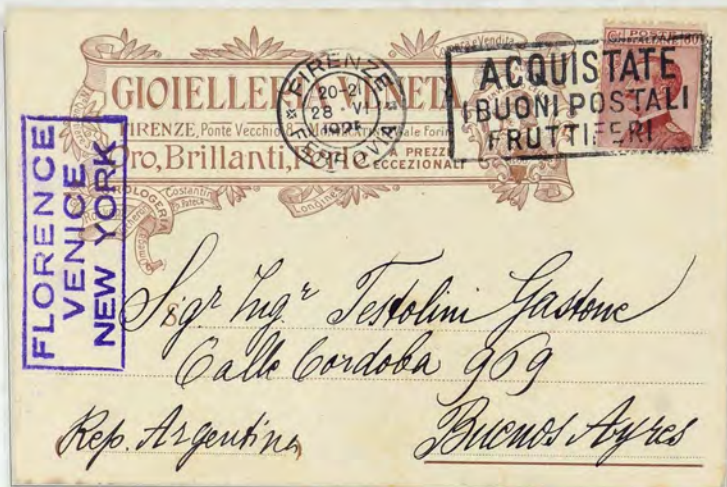 GIOIELLERIA VENETA
FIRENZE, Ponte Vecchio 8
Oro, Brillanti, Perle A PREZZI
ECCEZIONALI
Compra e Vendita
OROLOGERIA
Constantin
Longines
Omega
FIRENZE
20-21
28 · VI
FERROVIA
ACQUISTATE
I BUONI POSTALI
FRUTTIFERI
FLORENCE
VENICE
NEW YORK
Sigr Ingr Testolini Gastone
Calle Cordoba 969
Rep. Argentina Buenos Ayres